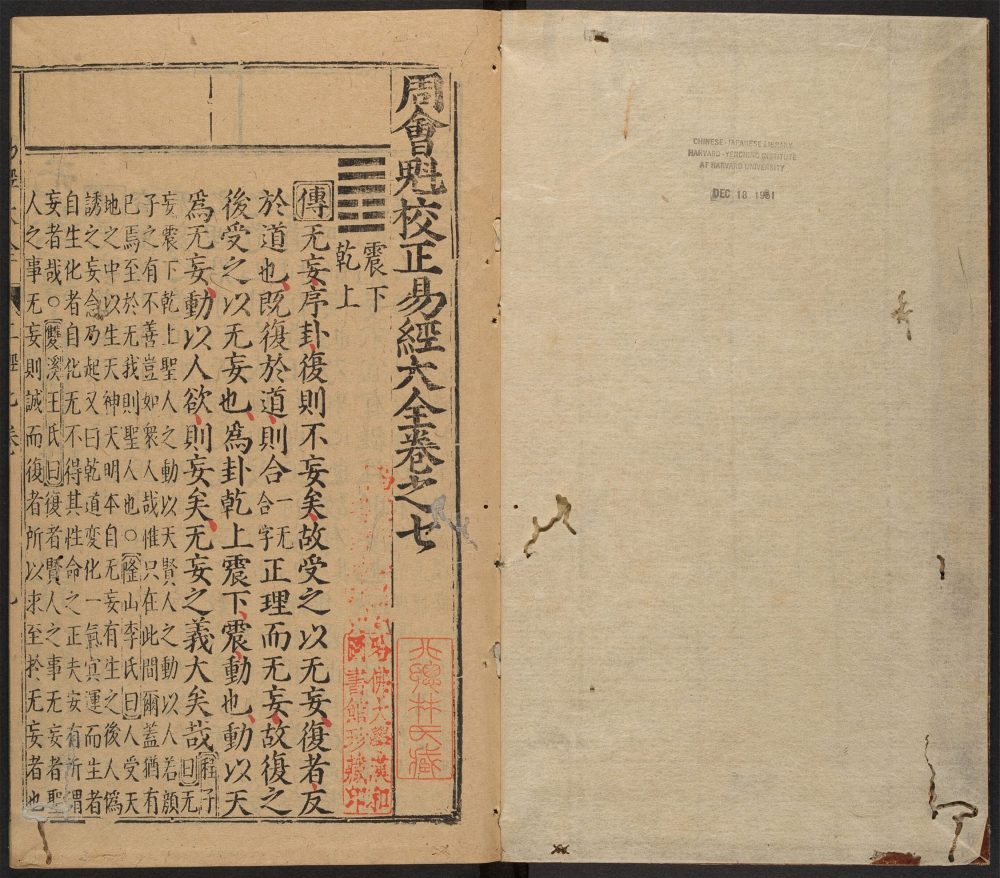 周會魁校正易經大全卷之七
震下
乾上
傳 无妄序卦復則不妄矣故受之以无妄復者反
於道也旣復於道則合一无合字正理而无妄故復之
後受之以无妄也爲卦乾上震下震動也動以天
爲无妄動以人欲則妄矣无妄之義大矣哉程子曰无
妄震下乾上聖人之動以天賢人之動以人若顔
子之有不善豈如衆人哉惟只在此間爾蓋猶有
已焉至於无我則聖人也○隆山李氏曰人受天
地之中以生天神天明本自无妄有生之後人僞
誘之妄念乃起又曰乾道变化一氣㝠運而生者
自生化者自化无不得其性命之正夫安有所谓
妄者哉○雙溪王氏曰復者賢人之事无妄者聖
人之事无妄則誠而復者所以求至於无妄者也
哈佛大學漢和
圖書館珍藏印
林氏藏
CHINESE-JAPANESE LIBRARY
HARVARD-YENCHING INSTITUTE
AT HARVARD UNIVERSITY
DEC 18 1981